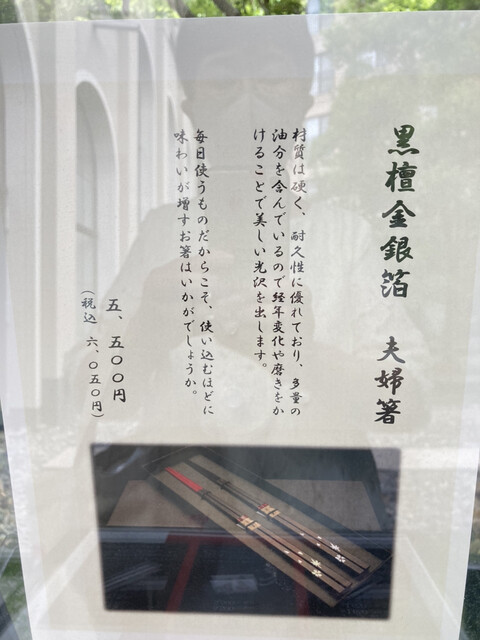 黒檀金銀箔　夫婦箸
材質は硬く、耐久性に優れており、多量の
油分を含んでいるので経年変化や磨きをか
けることで美しい光沢を出します。
毎日使うものだからこそ、使い込むほどに
味わいが増すお箸はいかがでしょうか。
五、五〇〇円
（税込　六、〇五〇円）